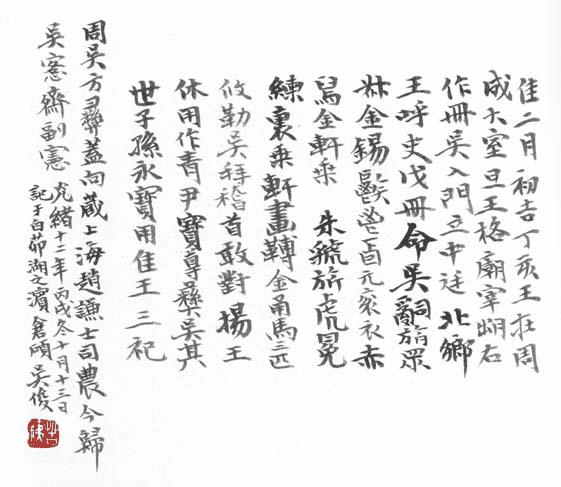 隹二月初吉丁亥王在周
成大室旦王格廟宰朏右
作冊吳入門立中廷 北鄉
王呼史戊冊命吳旃眾
金錫鬯卣元袞衣赤
舄金軒乘 朱虢旂虎冕
練裏乘軒畫轉金甬馬三匹
攸勒吳拜稽首敢對揚王
休用作青尹寶尊彝吳其
世子孫永寶用隹王三祀
周吳方彝蓋向藏上海趙謙士司農今歸
吳愙齋副憲
光緒十二年丙戌冬十月十三日
記于白茆湖之濱 倉碩吳俊